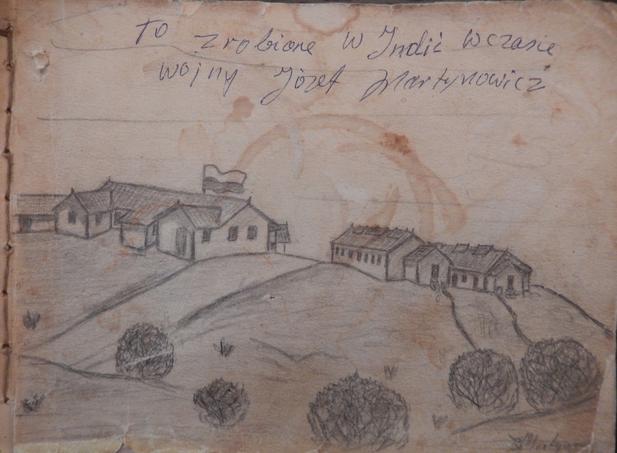 To zrobione w Indii wczasie
wojny Józef Martynowicz